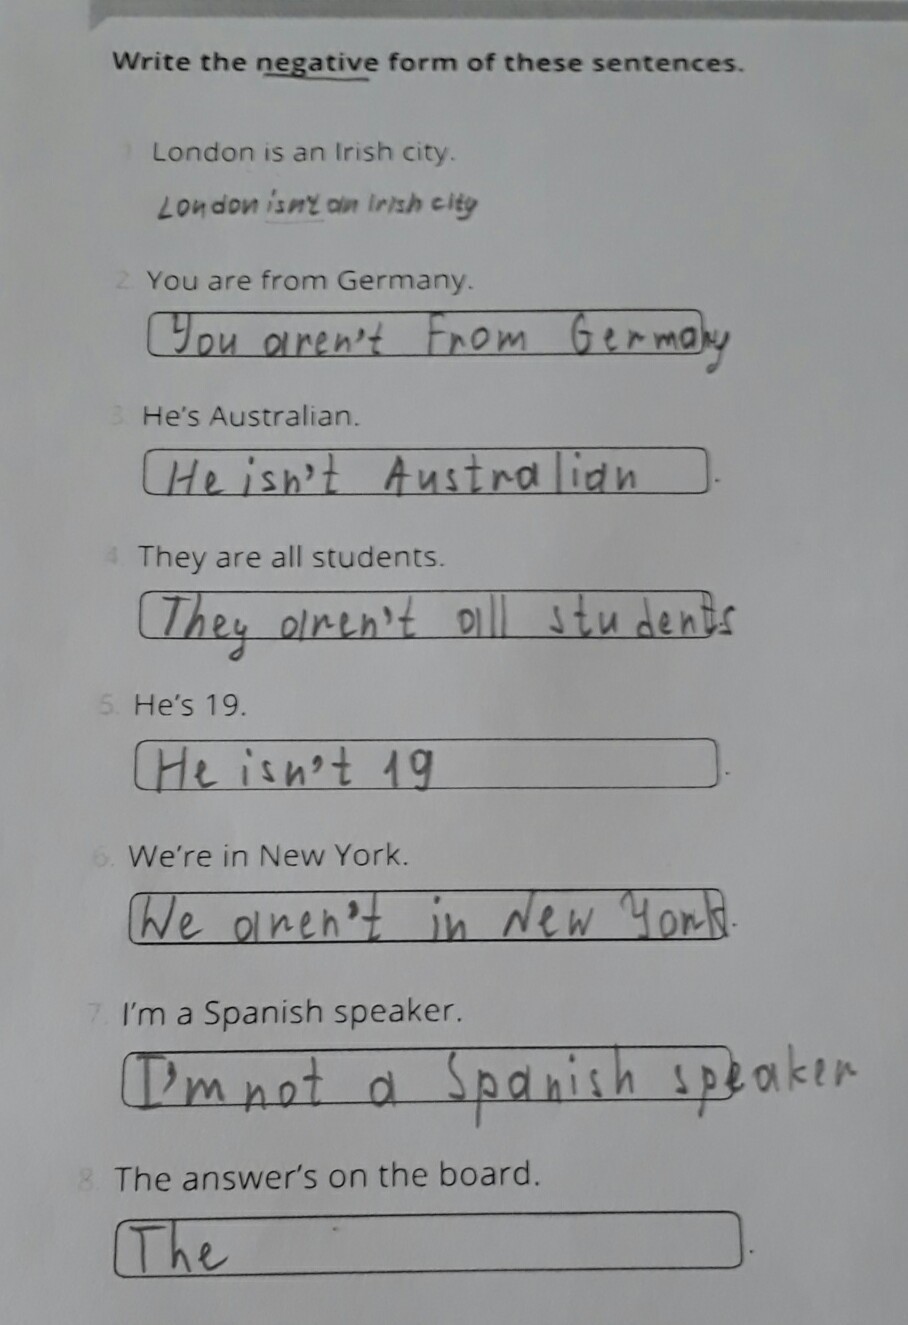 Write the negative form of these sentences.
1 London is an Irish city.
London isn't an Irish city
2 You are from Germany.
You aren't From Germany
3 He's Australian.
He isn't Australian.
4. They are all students.
They aren't all students
5. He's 19.
He isn't 19.
6. We're in New York.
We aren't in New York.
7. I'm a Spanish speaker.
I'm not a Spanish speaker
8. The answer's on the board.
The .